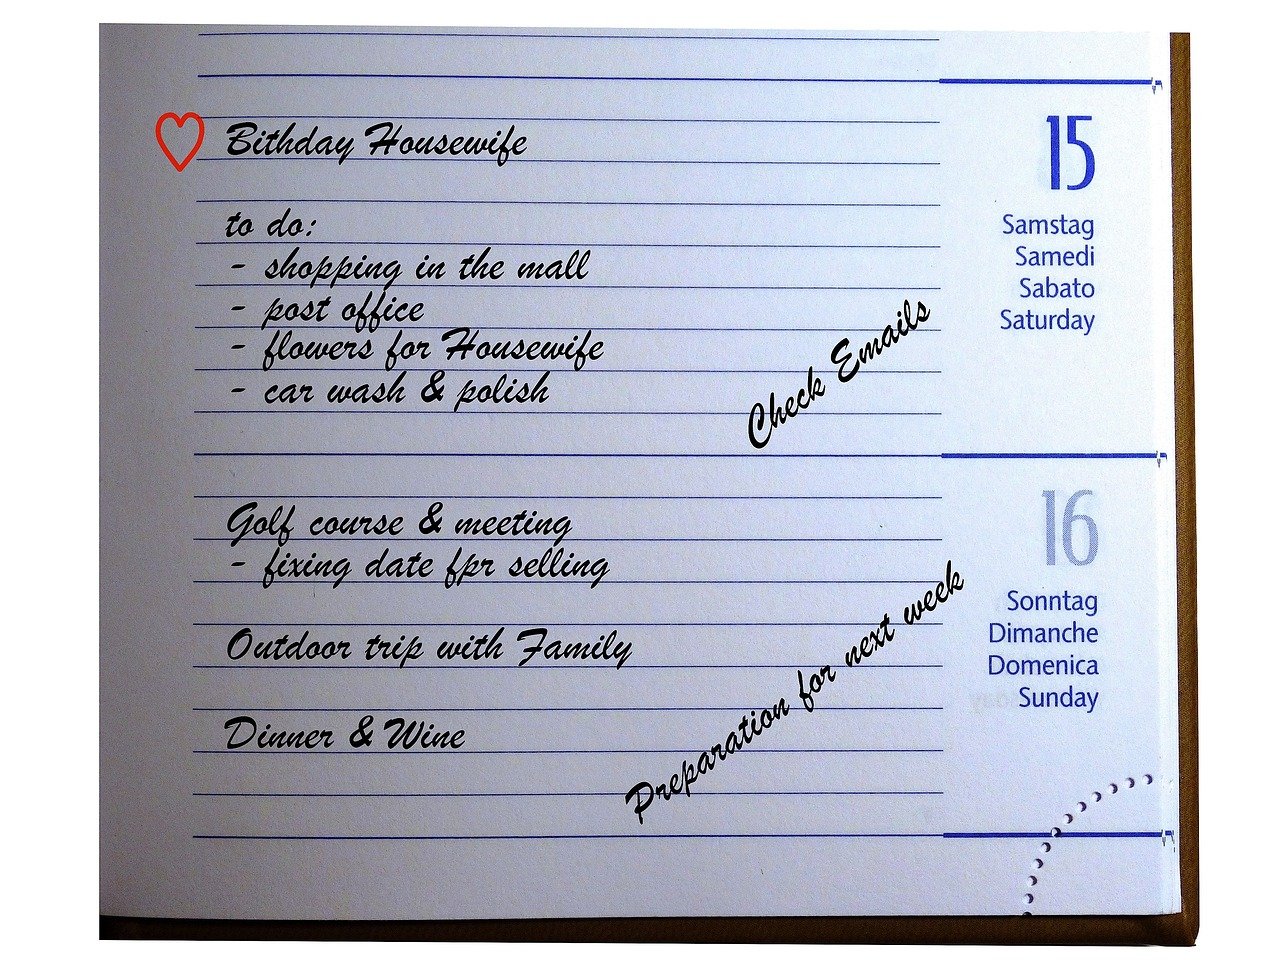 Bithday Housewife
15
Samstag
Samedi
Sabato
Saturday
to do:
- shopping in the mall
- post office
- flowers for Housewife
- car wash & polish
Check Emails
Golf course & meeting
- fixing date fpr selling
16
Sonntag
Dimanche
Domenica
Sunday
Outdoor trip with Family
Dinner & Wine
Preparation for next week